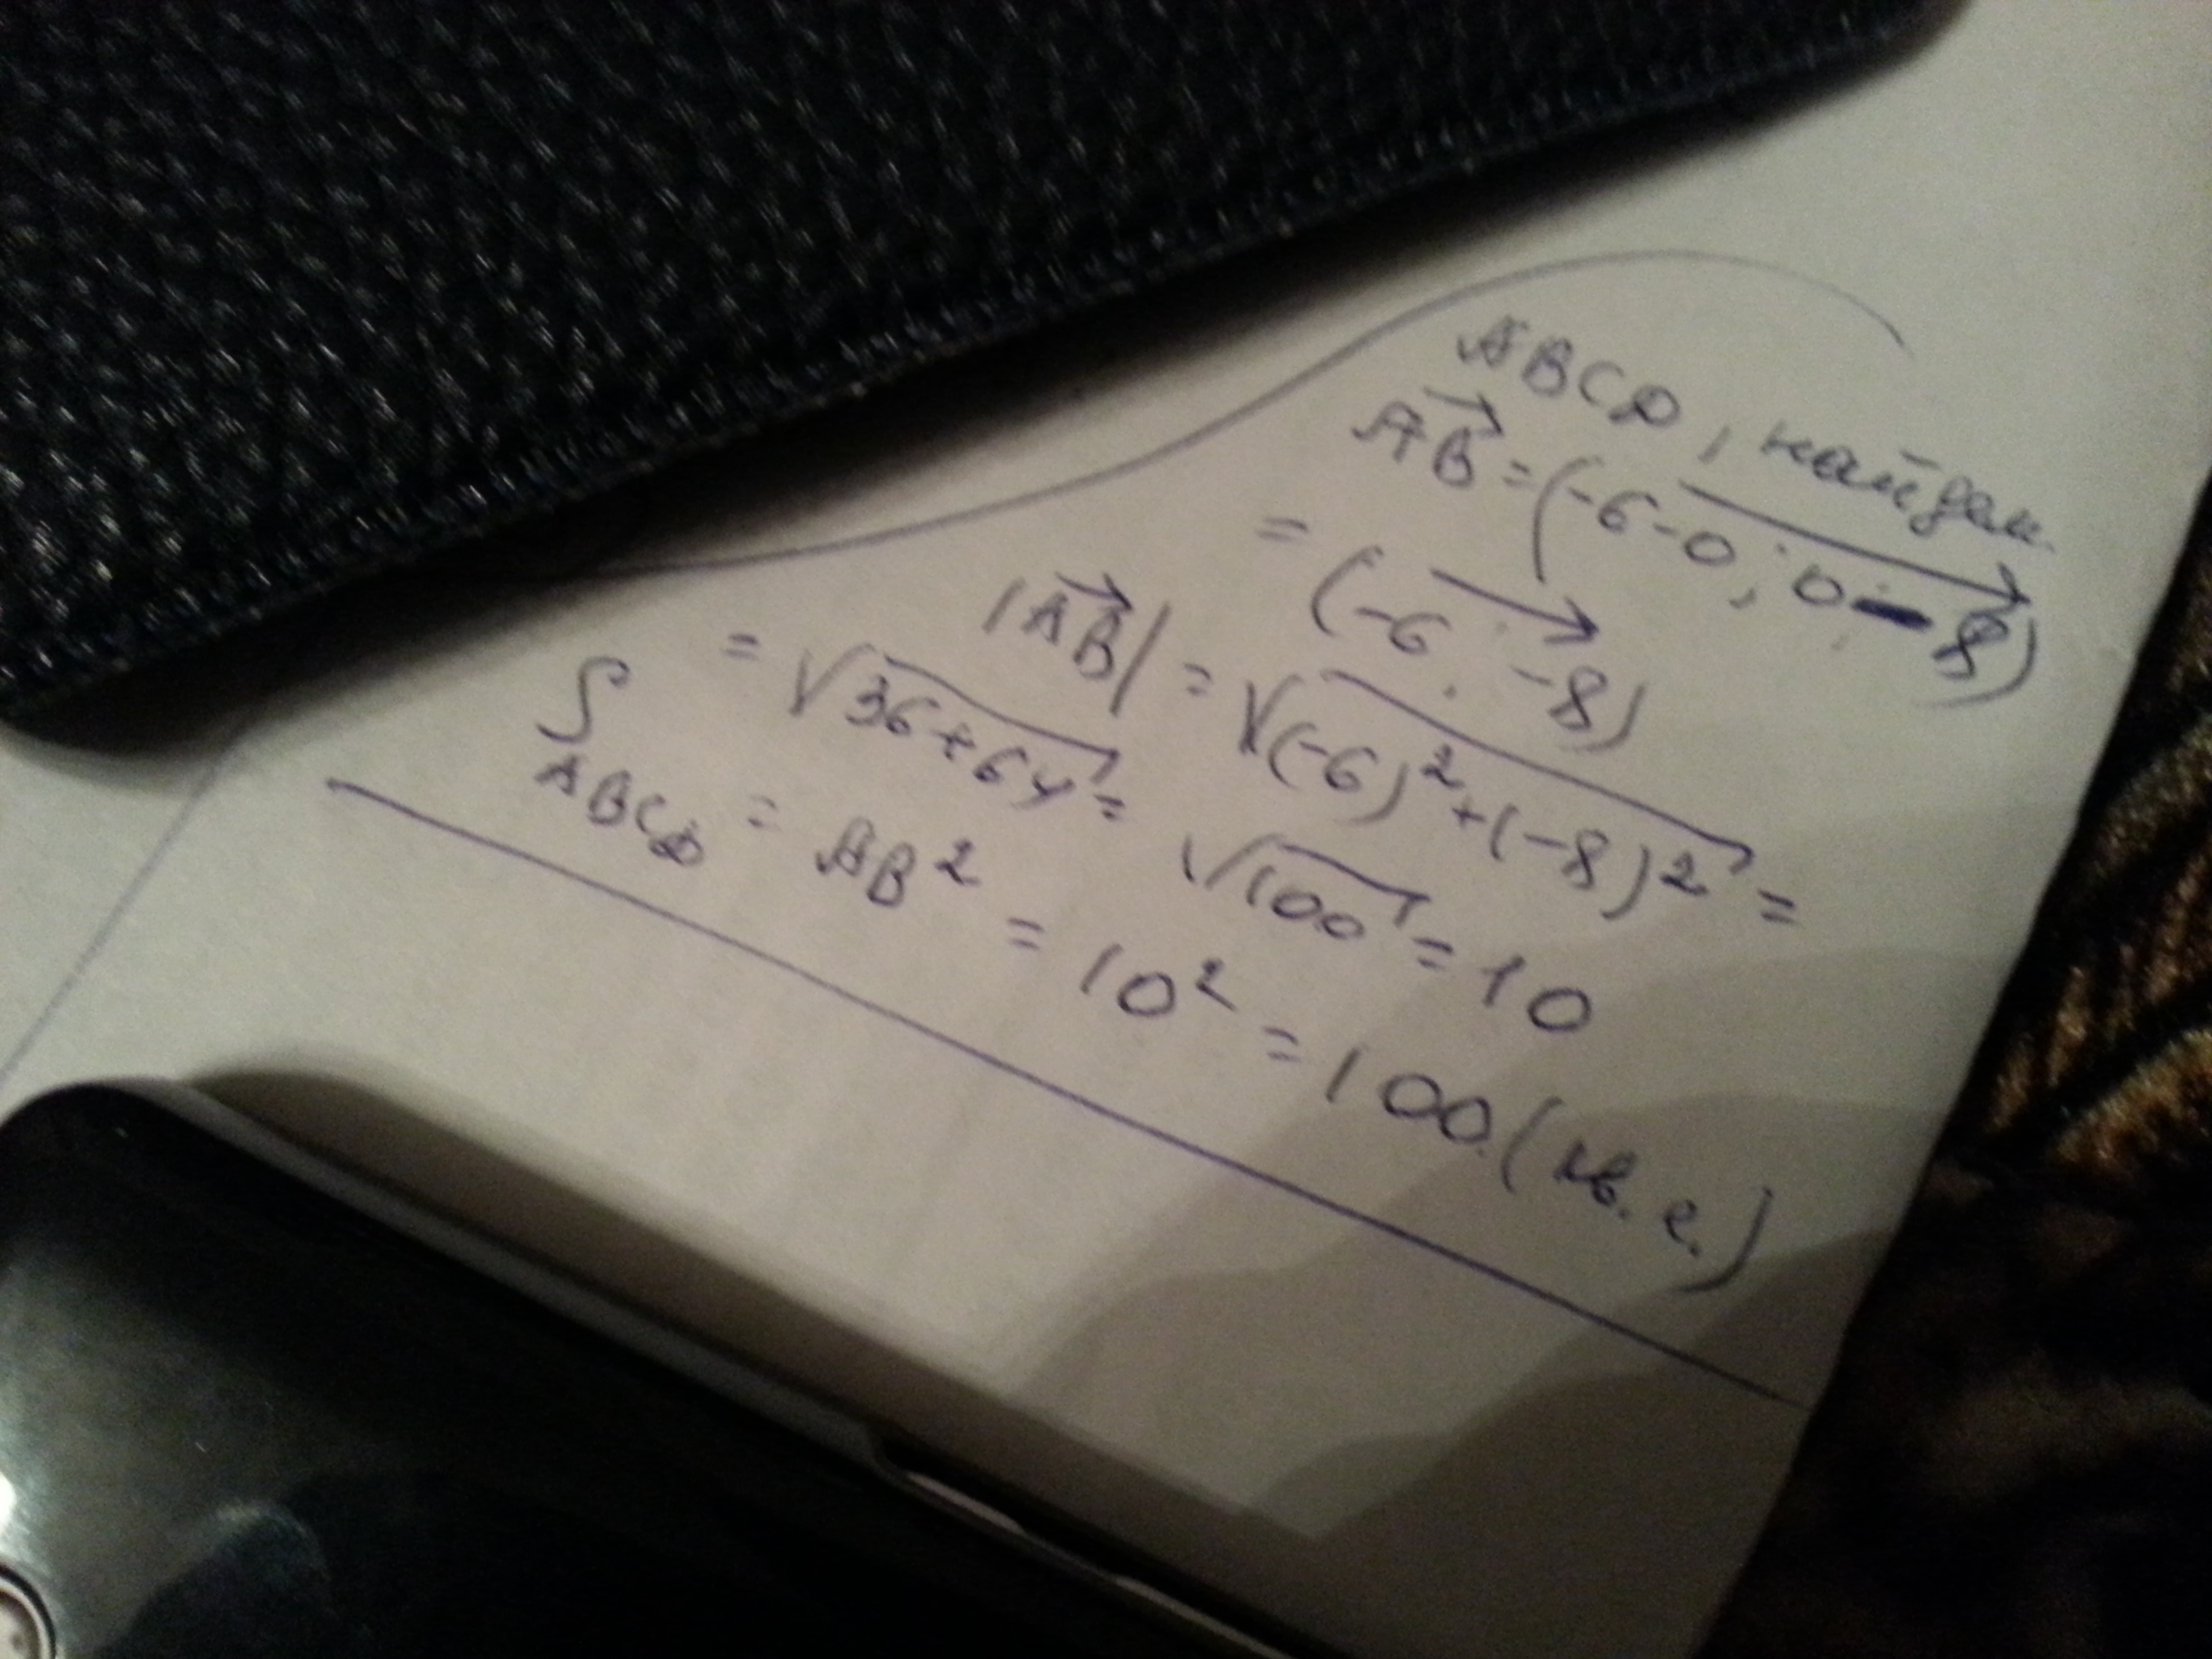 ABCD, найдем
AB = (-6-0; 0-8)
= (-6; -8)
|AB| = √(-6)²+(-8)² =
= √36+64 = √100 = 10
S ABCD = AB² = 10² = 100.(кв. е.)